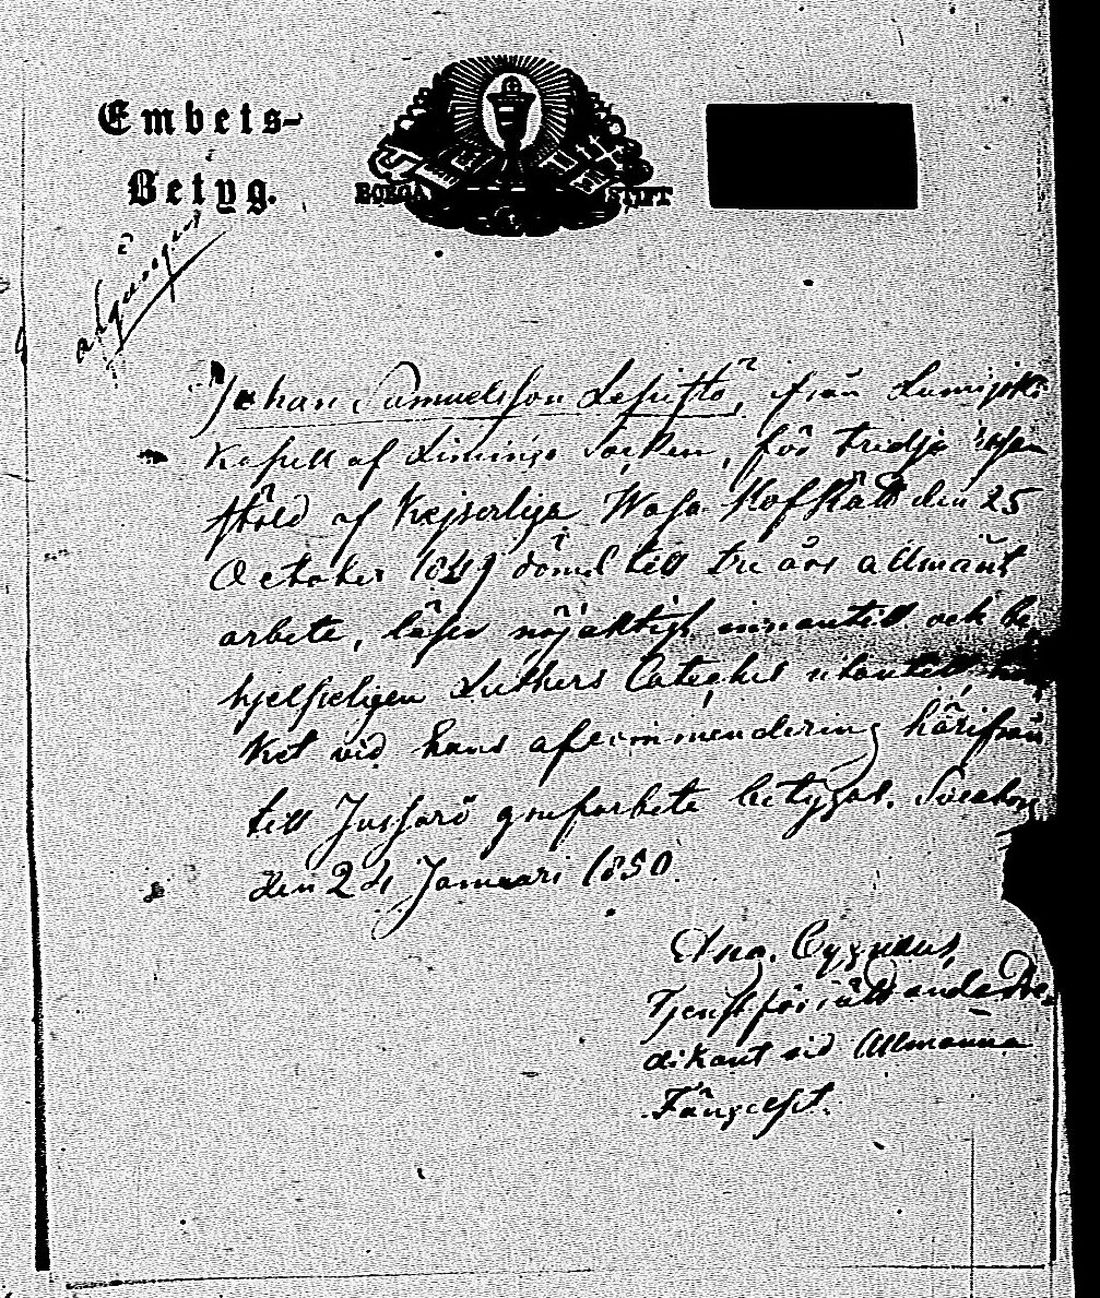 Embets-
Betyg.
BORGA STIFT
afgången
Johan Samuelsson Lesistö, från Lumijoki
Kapell af Limingo Socken, för tredje resan
stöld af Kejserliga Wasa Hofrätt den 25
October 1849 dömd till tre års allmänt
arbete, läser nöjaktigt innantill och be-
hjelpeligen Luthers Cateches utantill,
ket vid hans afcommendering härifrån
till Jussarö grufarbete betygas. Sveaborg
den 24 Januari 1850.
Cygnæus,
Tjenstförrättande Pre-
dikant vid Allmänna
Fängelset.